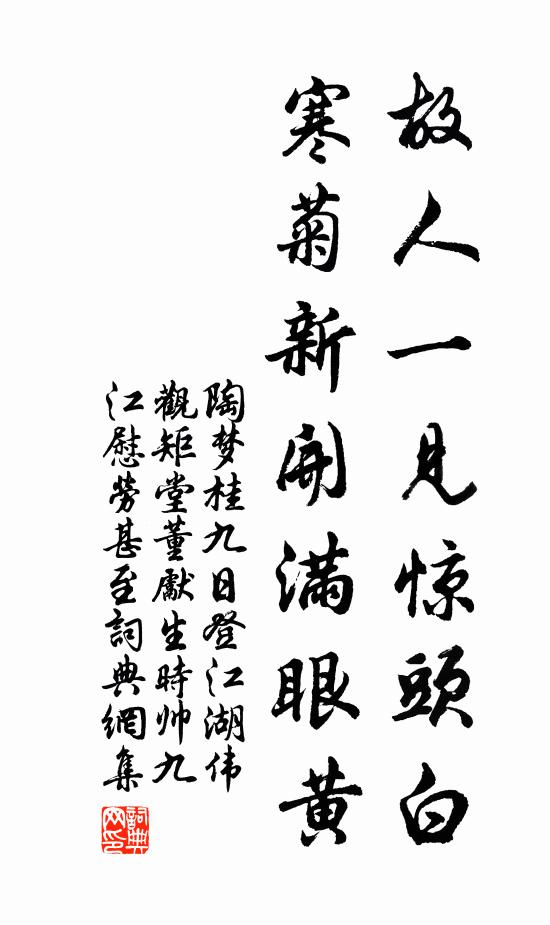 故人一见惊頭白
寒菊新開满眼黄
陶梦桂九日登江湖伟
觀矩堂董獻生時帅九
江慰勞甚至詞典網集
詞典网印